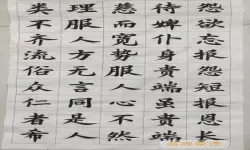 怨欲忘报怨短报恩长
待婢仆身贵端虽贵端
慈而宽势服人心不然
理服人方无言同是人
类不齐流俗众仁者希